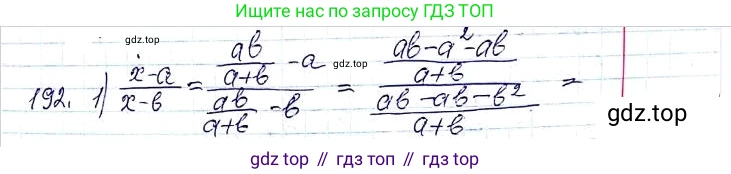 Ищите нас по запросу ГДЗ ТОП
gdz.top
192. 1) (x-a)/(x-b) = (ab/(a+b) - a)/(ab/(a+b) - b) = ((ab-a²-ab)/(a+b))/((ab-ab-b²)/(a+b)) =
gdz.top
gdz.top
gdz.top // гдз топ // гдз.top